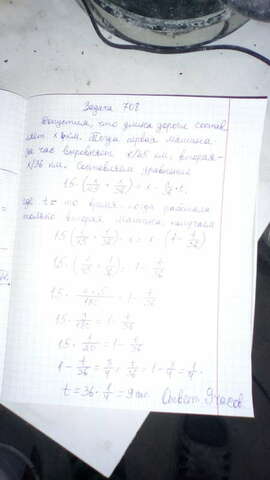 Задача 708
Допустим, что длина дороги состав
ляет x км. Тогда первая машина
за час выровняет x/45 км, вторая -
x/36 км. Составляем уравнение
15 · (x/45 + x/36) = x - x/36 · t,
где t = то время, когда работала
только вторая машина, получаем
15 · (1/45 + 1/36) · x = x · (1 - t/36)
15 · (1/45 + 1/36) = 1 - t/36
15 · (4 + 5)/180 = 1 - t/36
15 · 9/180 = 1 - t/36
15 · 1/20 = 1 - t/36
1 - t/36 = 3/4; t/36 = 1 - 3/4 = 1/4.
t = 36 · 1/4 = 9 час. Ответ. 9 часов